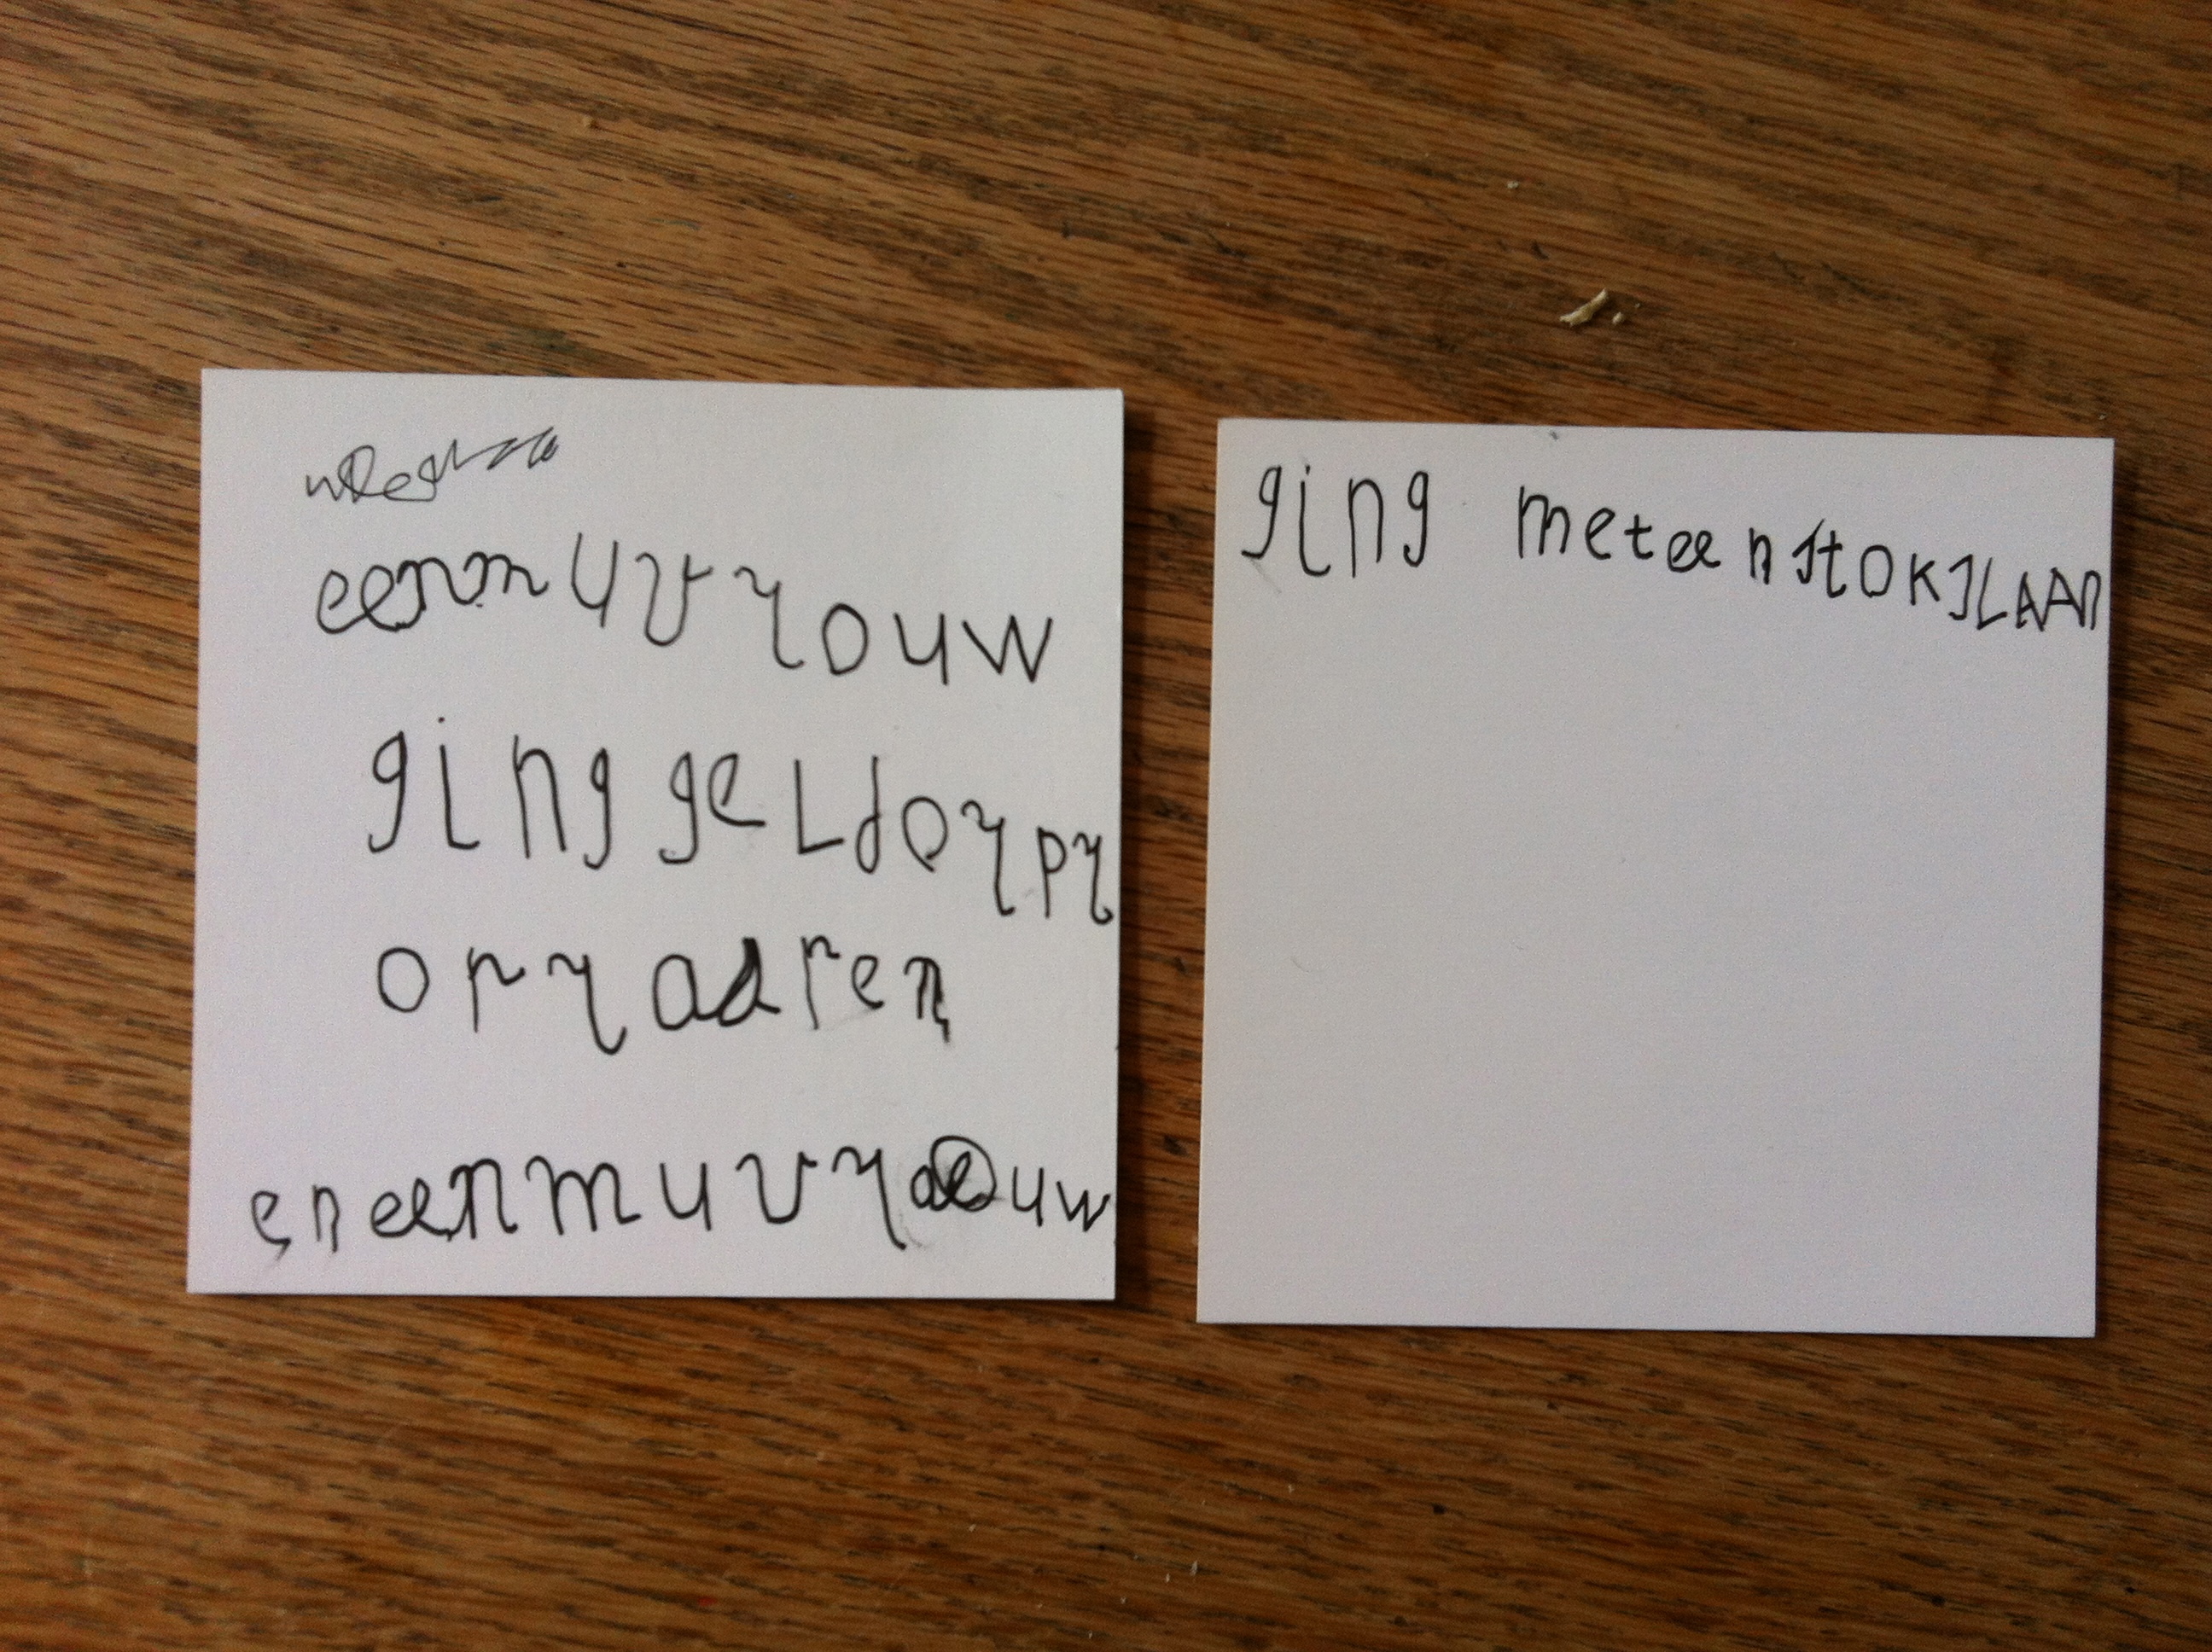 eenmuvrouw
ging geldorpr
opradren
eneenmuvrouw
ging meteenstokSLAAn